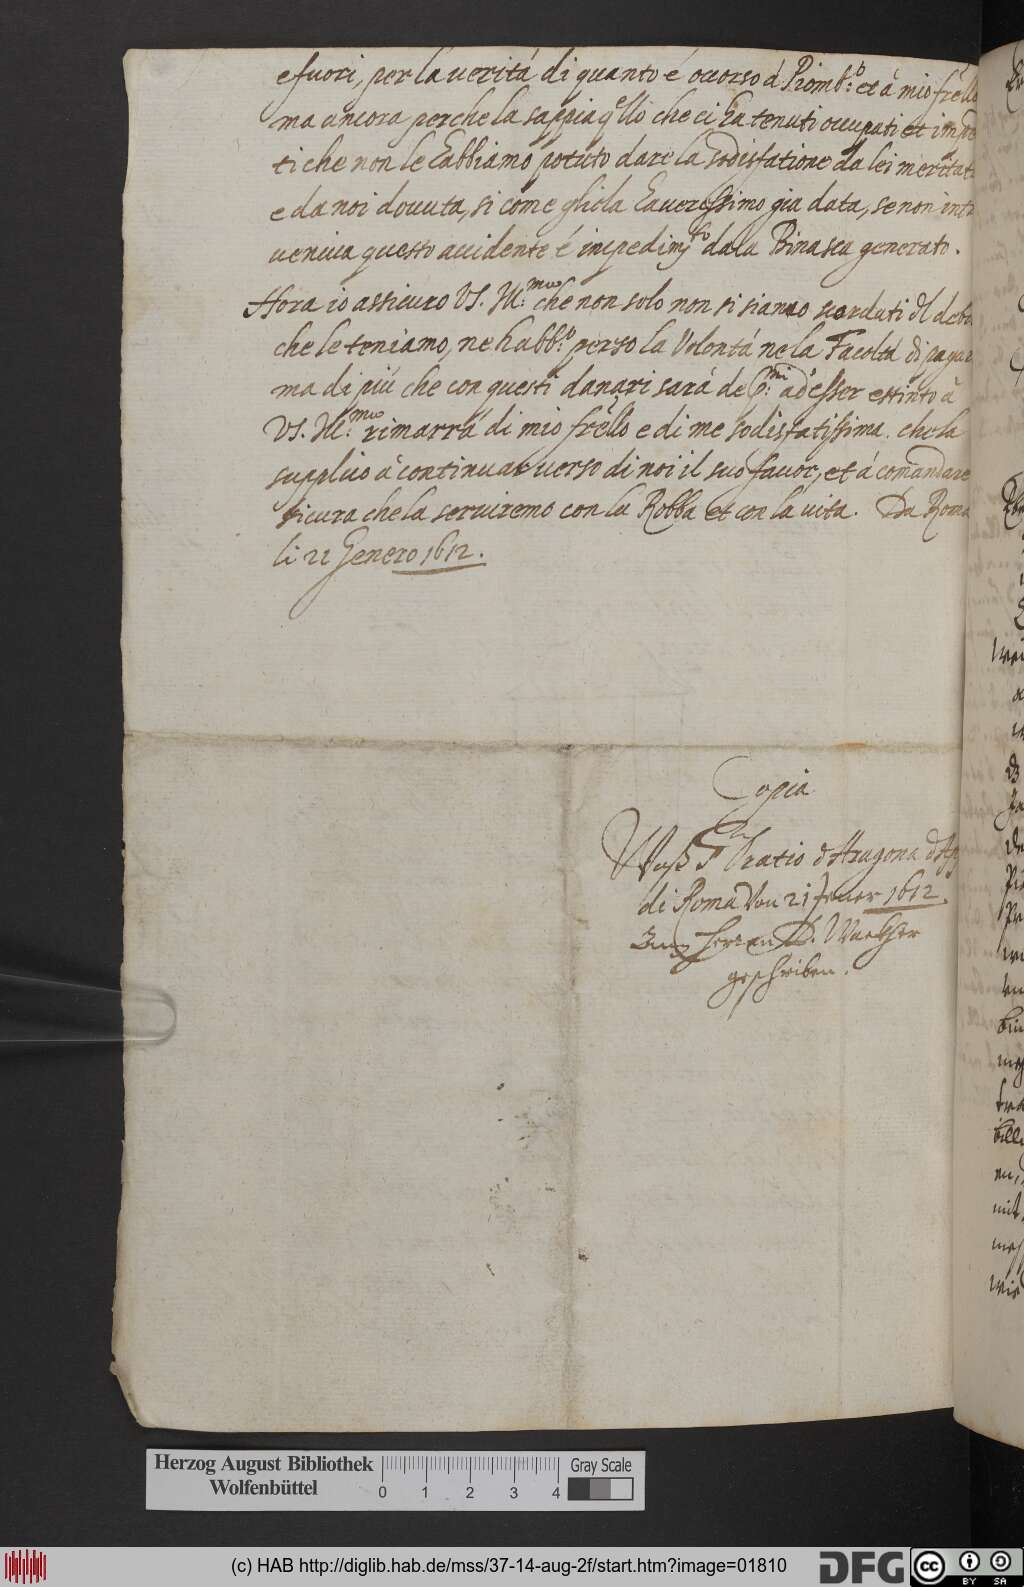 e fuori, per la uerità di quanto é occorso á Piomb:º et â mio frello
ma ancora perche la sappia qllo che ci ha tenuti occupati et impe
ti che non le habbiamo potuto dare la sodisfatione da lei meritat
e da noi douuta, si come gliela haueressimo gia data, se non int
ueniua questo accidente é impedim.to dala Binasca generato.
Hora io assicuro VS. Ill.ma che non solo non si siamo scordati dl debi
che le teniamo, ne habb.º perso la Volontá ne la Facoltá di pagar
ma di piú che con questi danari sará de ad esser estinto â
VS. Ill.ma rimarrá di mio frello e di me sodisfatissima. che la
supplico â continuar uerso di noi il suó fauor, et á comandare
sicura che la seruiremo con la Robba et con la uita. Da Roma
li 21 Genero 1612.
Copia
Waß Sr Oratio d'Aragona
di Roma Von 21 Jener 1612.
Zum Herren D. Wackher
geschriben.
Herzog August Bibliothek
Wolfenbüttel
0 1 2 3 4
Gray Scale
(c) HAB http://diglib.hab.de/mss/37-14-aug-2f/start.htm?image=01810
DFG
cc BY SA